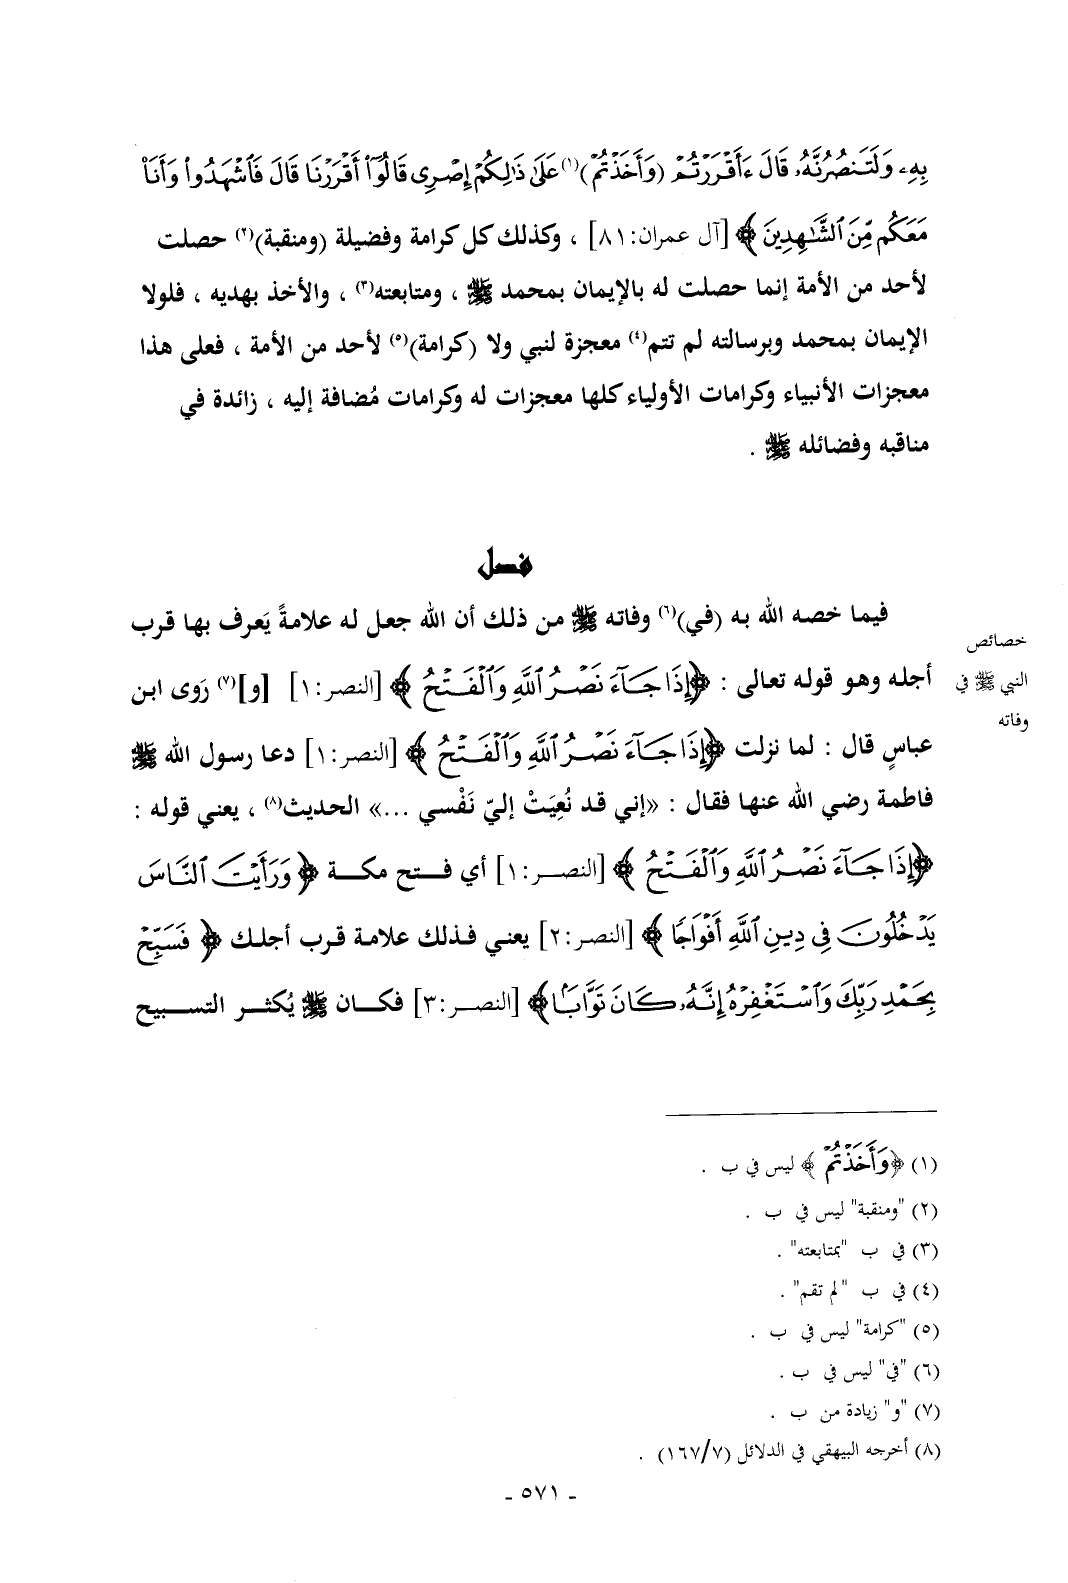 بِهِۦ وَلَتَنصُرُنَّهُۥ قَالَ ءَأَقْرَرْتُمْ (وَأَخَذْتُمْ)(١) عَلَىٰ ذَٰلِكُمْ إِصْرِى قَالُوٓا۟ أَقْرَرْنَا قَالَ فَٱشْهَدُوا۟ وَأَنَا۠
مَعَكُم مِّنَ ٱلشَّٰهِدِينَ ﴾ [آل عمران:٨١] ، وكذلك كل كرامة وفضيلة (ومنقبة)(٢) حصلت
لأحد من الأمة إنما حصلت له بالإيمان بمحمد ﷺ ، ومتابعته(٣) ، والأخذ بهديه ، فلولا
الإيمان بمحمد وبرسالته لم تتم(٤) معجزة لنبي ولا (كرامة)(٥) لأحد من الأمة ، فعلى هذا
معجزات الأنبياء وكرامات الأولياء كلها معجزات له وكرامات مُضافة إليه ، زائدة في
مناقبه وفضائله ﷺ .
فصل
فيما خصه الله به (في)(٦) وفاته ﷺ من ذلك أن الله جعل له علامةً يَعرف بها قرب
خصائص
النبي ﷺ في
وفاته
أجله وهو قوله تعالى : ﴿إِذَا جَآءَ نَصْرُ ٱللَّهِ وَٱلْفَتْحُ ﴾ [النصر:١] [و](٧) رَوى ابن
عباسٍ قال : لما نزلت ﴿إِذَا جَآءَ نَصْرُ ٱللَّهِ وَٱلْفَتْحُ ﴾ [النصر:١] دعا رسول الله ﷺ
فاطمة رضي الله عنها فقال : «إني قد نُعِيَتْ إليّ نَفْسي ...» الحديث(٨) ، يعني قوله :
﴿إِذَا جَآءَ نَصْرُ ٱللَّهِ وَٱلْفَتْحُ ﴾ [النصر:١] أي فتح مكة ﴿ وَرَأَيْتَ ٱلنَّاسَ
يَدْخُلُونَ فِى دِينِ ٱللَّهِ أَفْوَاجًا ﴾ [النصر:٢] يعني فذلك علامة قرب أجلك ﴿ فَسَبِّحْ
بِحَمْدِ رَبِّكَ وَٱسْتَغْفِرْهُ إِنَّهُۥ كَانَ تَوَّابًۢا﴾ [النصر:٣] فكان ﷺ يُكثر التسبيح
(١) ﴿وَأَخَذْتُمْ ﴾ ليس في ب .
(٢) "ومنقبة" ليس في ب .
(٣) في ب "بمتابعته" .
(٤) في ب "لم تقم" .
(٥) "كرامة" ليس في ب .
(٦) "في" ليس في ب .
(٧) "و" زيادة من ب .
(٨) أخرجه البيهقي في الدلائل (١٦٧/٧) .
- ٥٧١ -